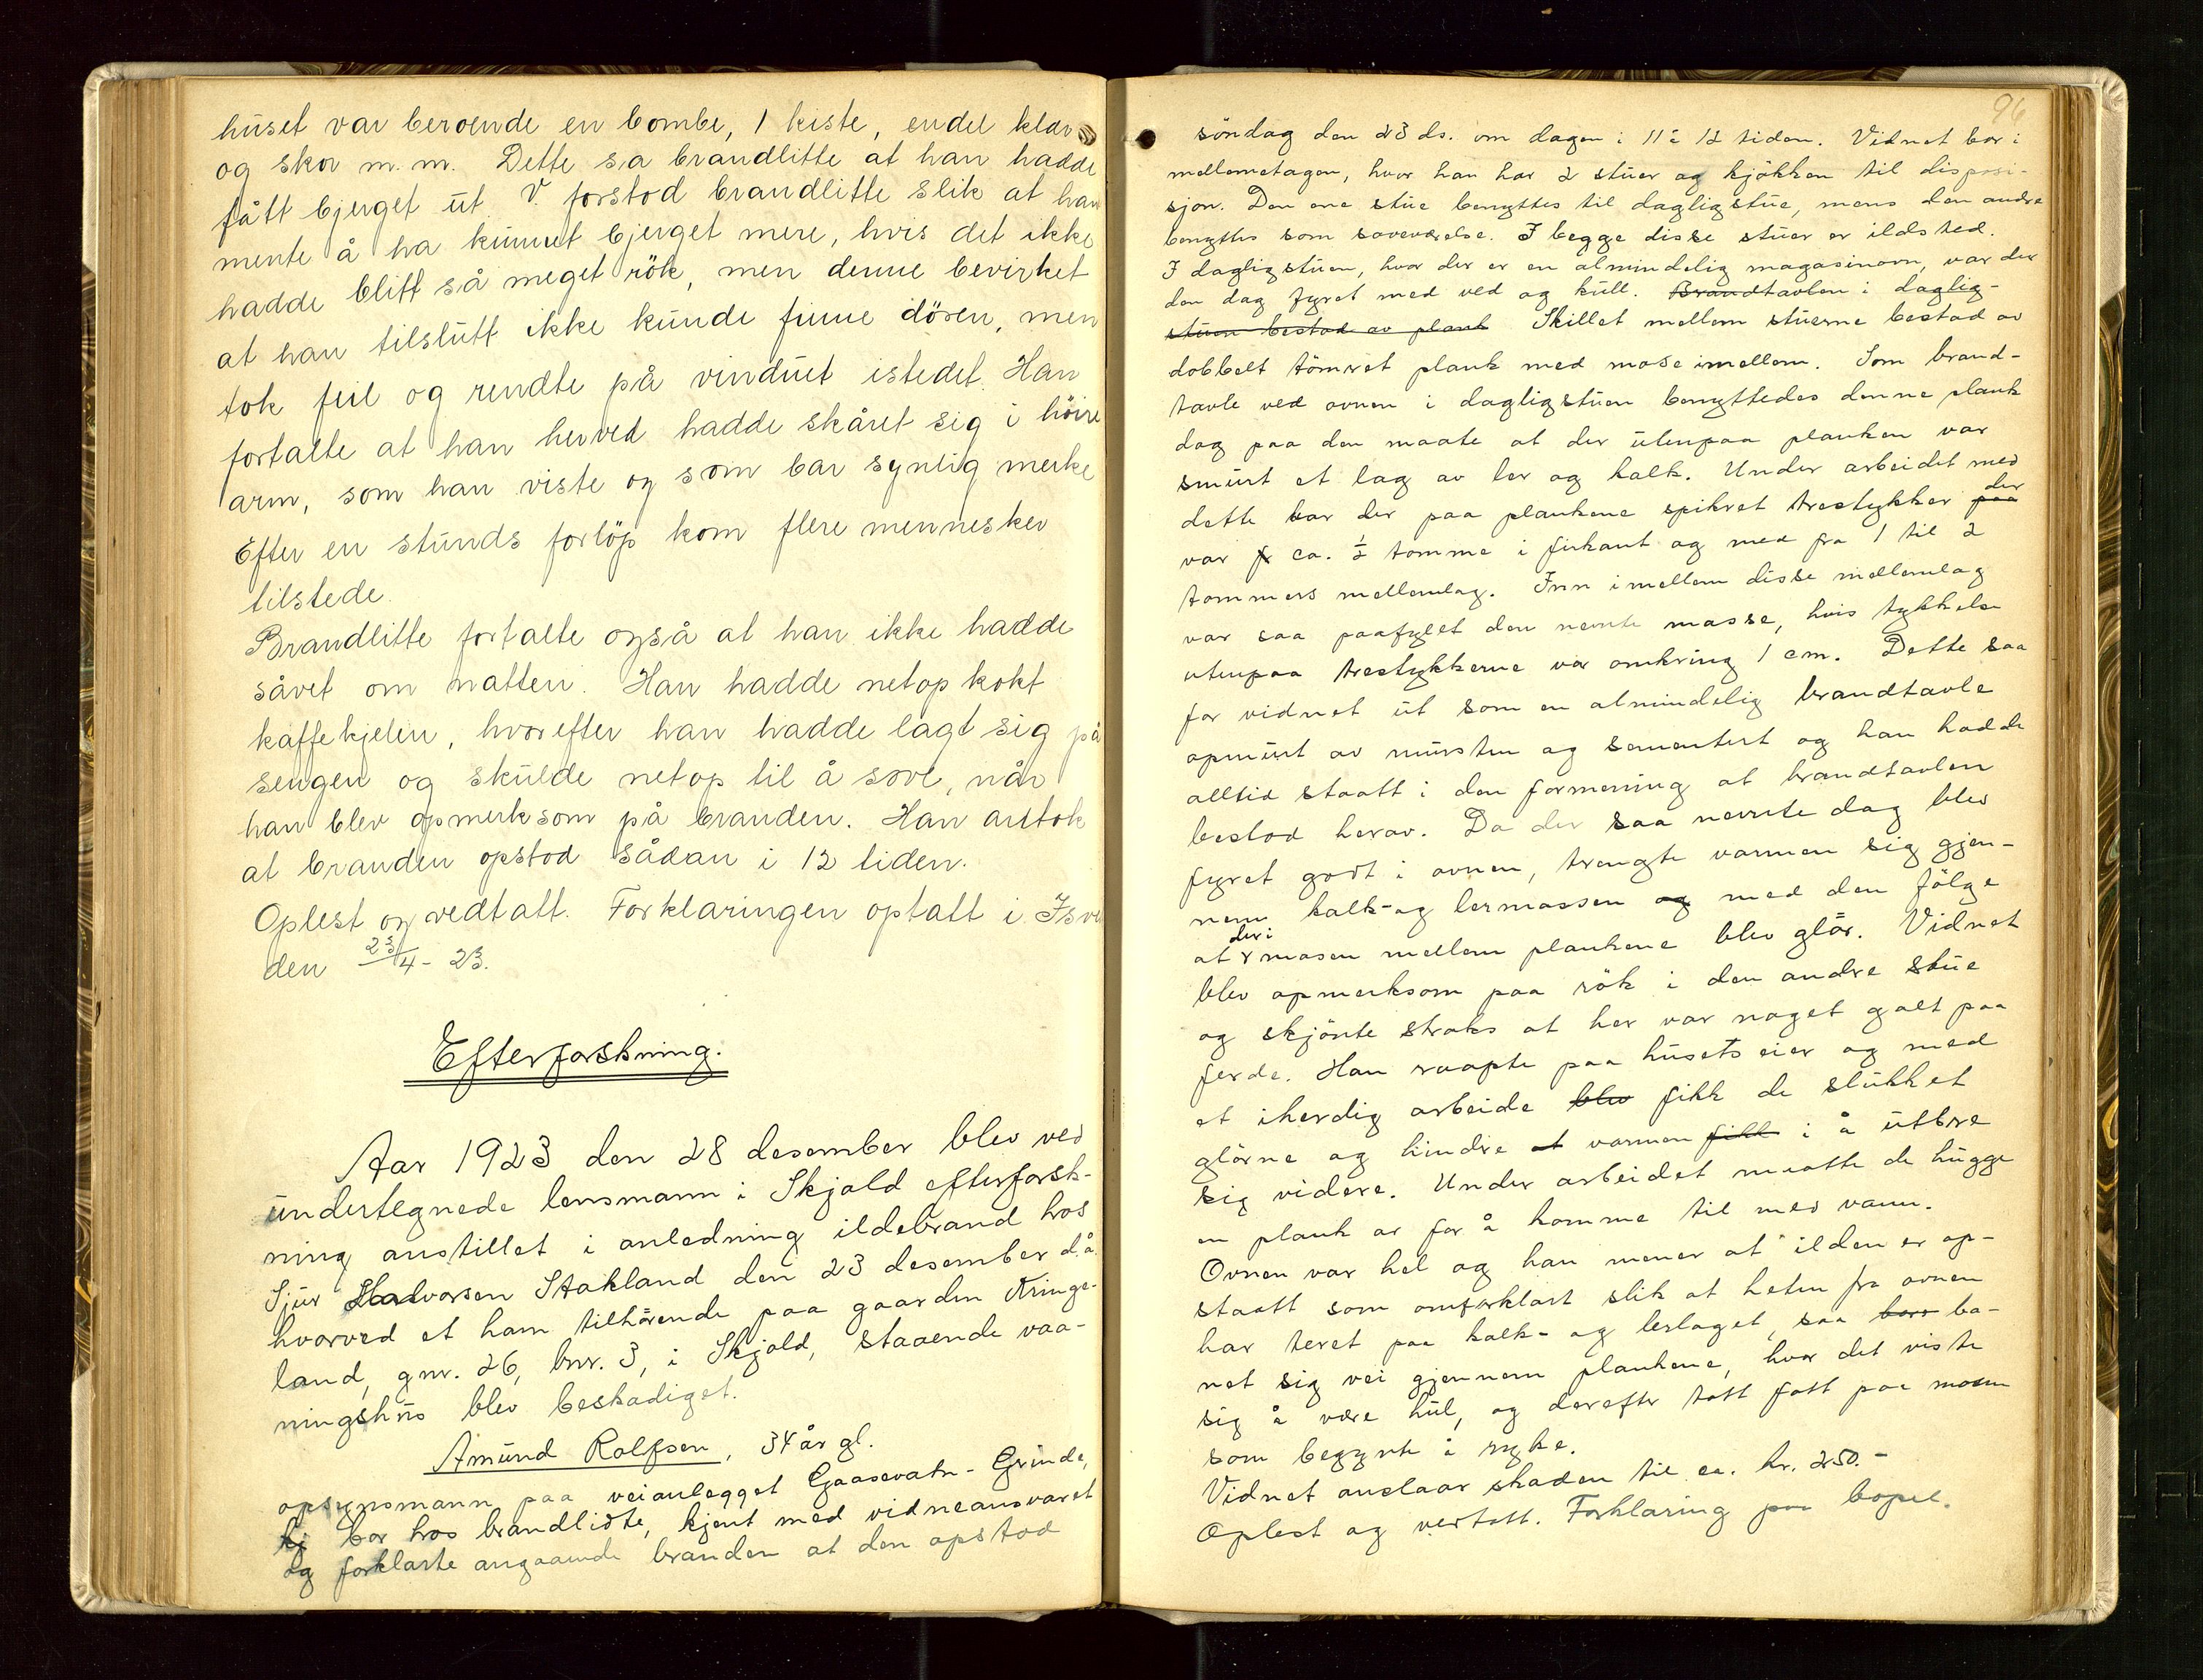 huset var beroende en bombe, 1 kiste, endel klær
og sko m.m. Dette sa brandlitte at han hadde
fått bjerget ut. V. forstod brandlitte slik at han
mente å ha kunnet bjerget mere, hvis det ikke
hadde blitt så meget rök, men denne bevirket
at han tilslutt ikke kunde finne dören, men
tok feil og rendte på vinduet istedet. Han
fortalte at han herved hadde skåret sig i höire
arm, som han viste og som bar synlig merke
Efter en stunds forlöp kom flere mennesker
tilstede.
Brandlitte fortalte også at han ikke hadde
såvet om natten. Han hadde netop kokt
kaffekjelen, hvorefter han hadde lagt sig på
sengen og skulde netop til å sove, når
han blev opmerksom på branden. Han antok
at branden opstod sådan i 12 tiden.
Oplest og vedtatt. Forklaringen optatt i
den 23/4 - 23.
Efterforskning.
Aar 1923 den 28 desember blev ved
undertegnede lensmann i Skjold efterforsk-
ning anstillet i anledning ildebrand hos
Sjur Halvorsen Stakland den 23 desember d.å.
hvorved et ham tilhörende paa gaarden Kringe-
land, gnr. 26, bnr. 3, i Skjold, staaende vaa-
ningshus blev beskadiget.
Amund Rolfsen, 34 år gl.
opsynsmann paa veianlegget Gaasevatn - Grinde,
bor hos brandlidte, kjent med vidneansvaret
og forklarte angaaende branden at den opstod
96
söndag den 23 ds. om dagen i 11 à 12 tiden. Vidnet bor i
mellemetagen, hvor han har 2 stuer og kjökken til disposi-
sjon. Den ene stue benyttes til dagligstue, mens den andre
benyttes som soveværelse. I begge disse stuer er ildsted.
I dagligstuen, hvor der er en almindelig magasinovn, var der
den dag fyret med ved og kull. Brandtavlen i daglig-
stuen bestod av plank Skillet mellem stuerne bestod av
dobbelt tömret plank med mose imellem. Som brand-
tavle ved ovnen i dagligstuen benyttedes denne plank
dog paa den maate at der utenpaa planken var
smurt et lag av ler og kalk. Under arbeidet med
dette var der paa plankene spikret trestykker paa der
var f ca. ½ tomme i firkant og med fra 1 til 2
tommers mellemlag. Inn imellem disse mellemlag
var saa paafyllt den nevnte masse, hvis tykkelse
utenpaa trestykkerne var omkring 1 cm. Dette saa
for vidnet ut som en almindelig brandtavle
opmurt av mursten og sementert og han hadde
alltid staatt i den formening at brandtavlen
bestod herav. Da der saa nevnte dag blev
fyret godt i ovnen, trengte varmen sig gjen-
nem kalk- og lermassen og med den fölge
at der i mosen mellem plankene blev glör. Vidnet
blev opmerksom paa rök i den andre stue
og skjönte straks at her var noget galt paa
ferde. Han roopte paa husets eier og med
et iherdig arbeide blev fikk de slukket
glörne og hindre at varmen fikk i å utbre
sig videre. Under arbeidet maatte de hugge
en plank av for å komme til med vann.
Ovnen var hel og han mener at ilden er op-
staatt som omforklart slik at heten fra ovnen
har teret paa kalk- og lerlaget, saa bare ba-
net sig vei gjennem plankene, hvor det viste
sig å være hul, og derefter tatt fatt paa mosen
som begynte å ryke.
Vidnet anslaar skaden til ca. kr. 250.-
Oplest og vedtatt. Forklaring paa bopel.